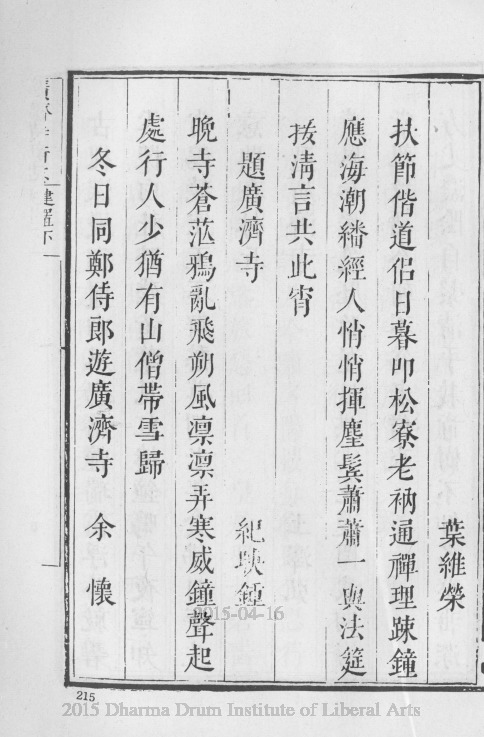 葉維榮
扶節偕道侶日暮叩松寮老衲通禪理踈鐘
應海潮繙經人悄悄揮麈鬂蕭蕭一與法筵
接清言共此宵
題廣濟寺 紀映鍾
晚寺蒼茫鴉亂飛朔風凛凛弄寒威鐘聲起
處行人少猶有山僧帶雪歸
冬日同鄭侍郎遊廣濟寺 余懷
建置下
215
2015-04-16
2015 Dharma Drum Institute of Liberal Arts